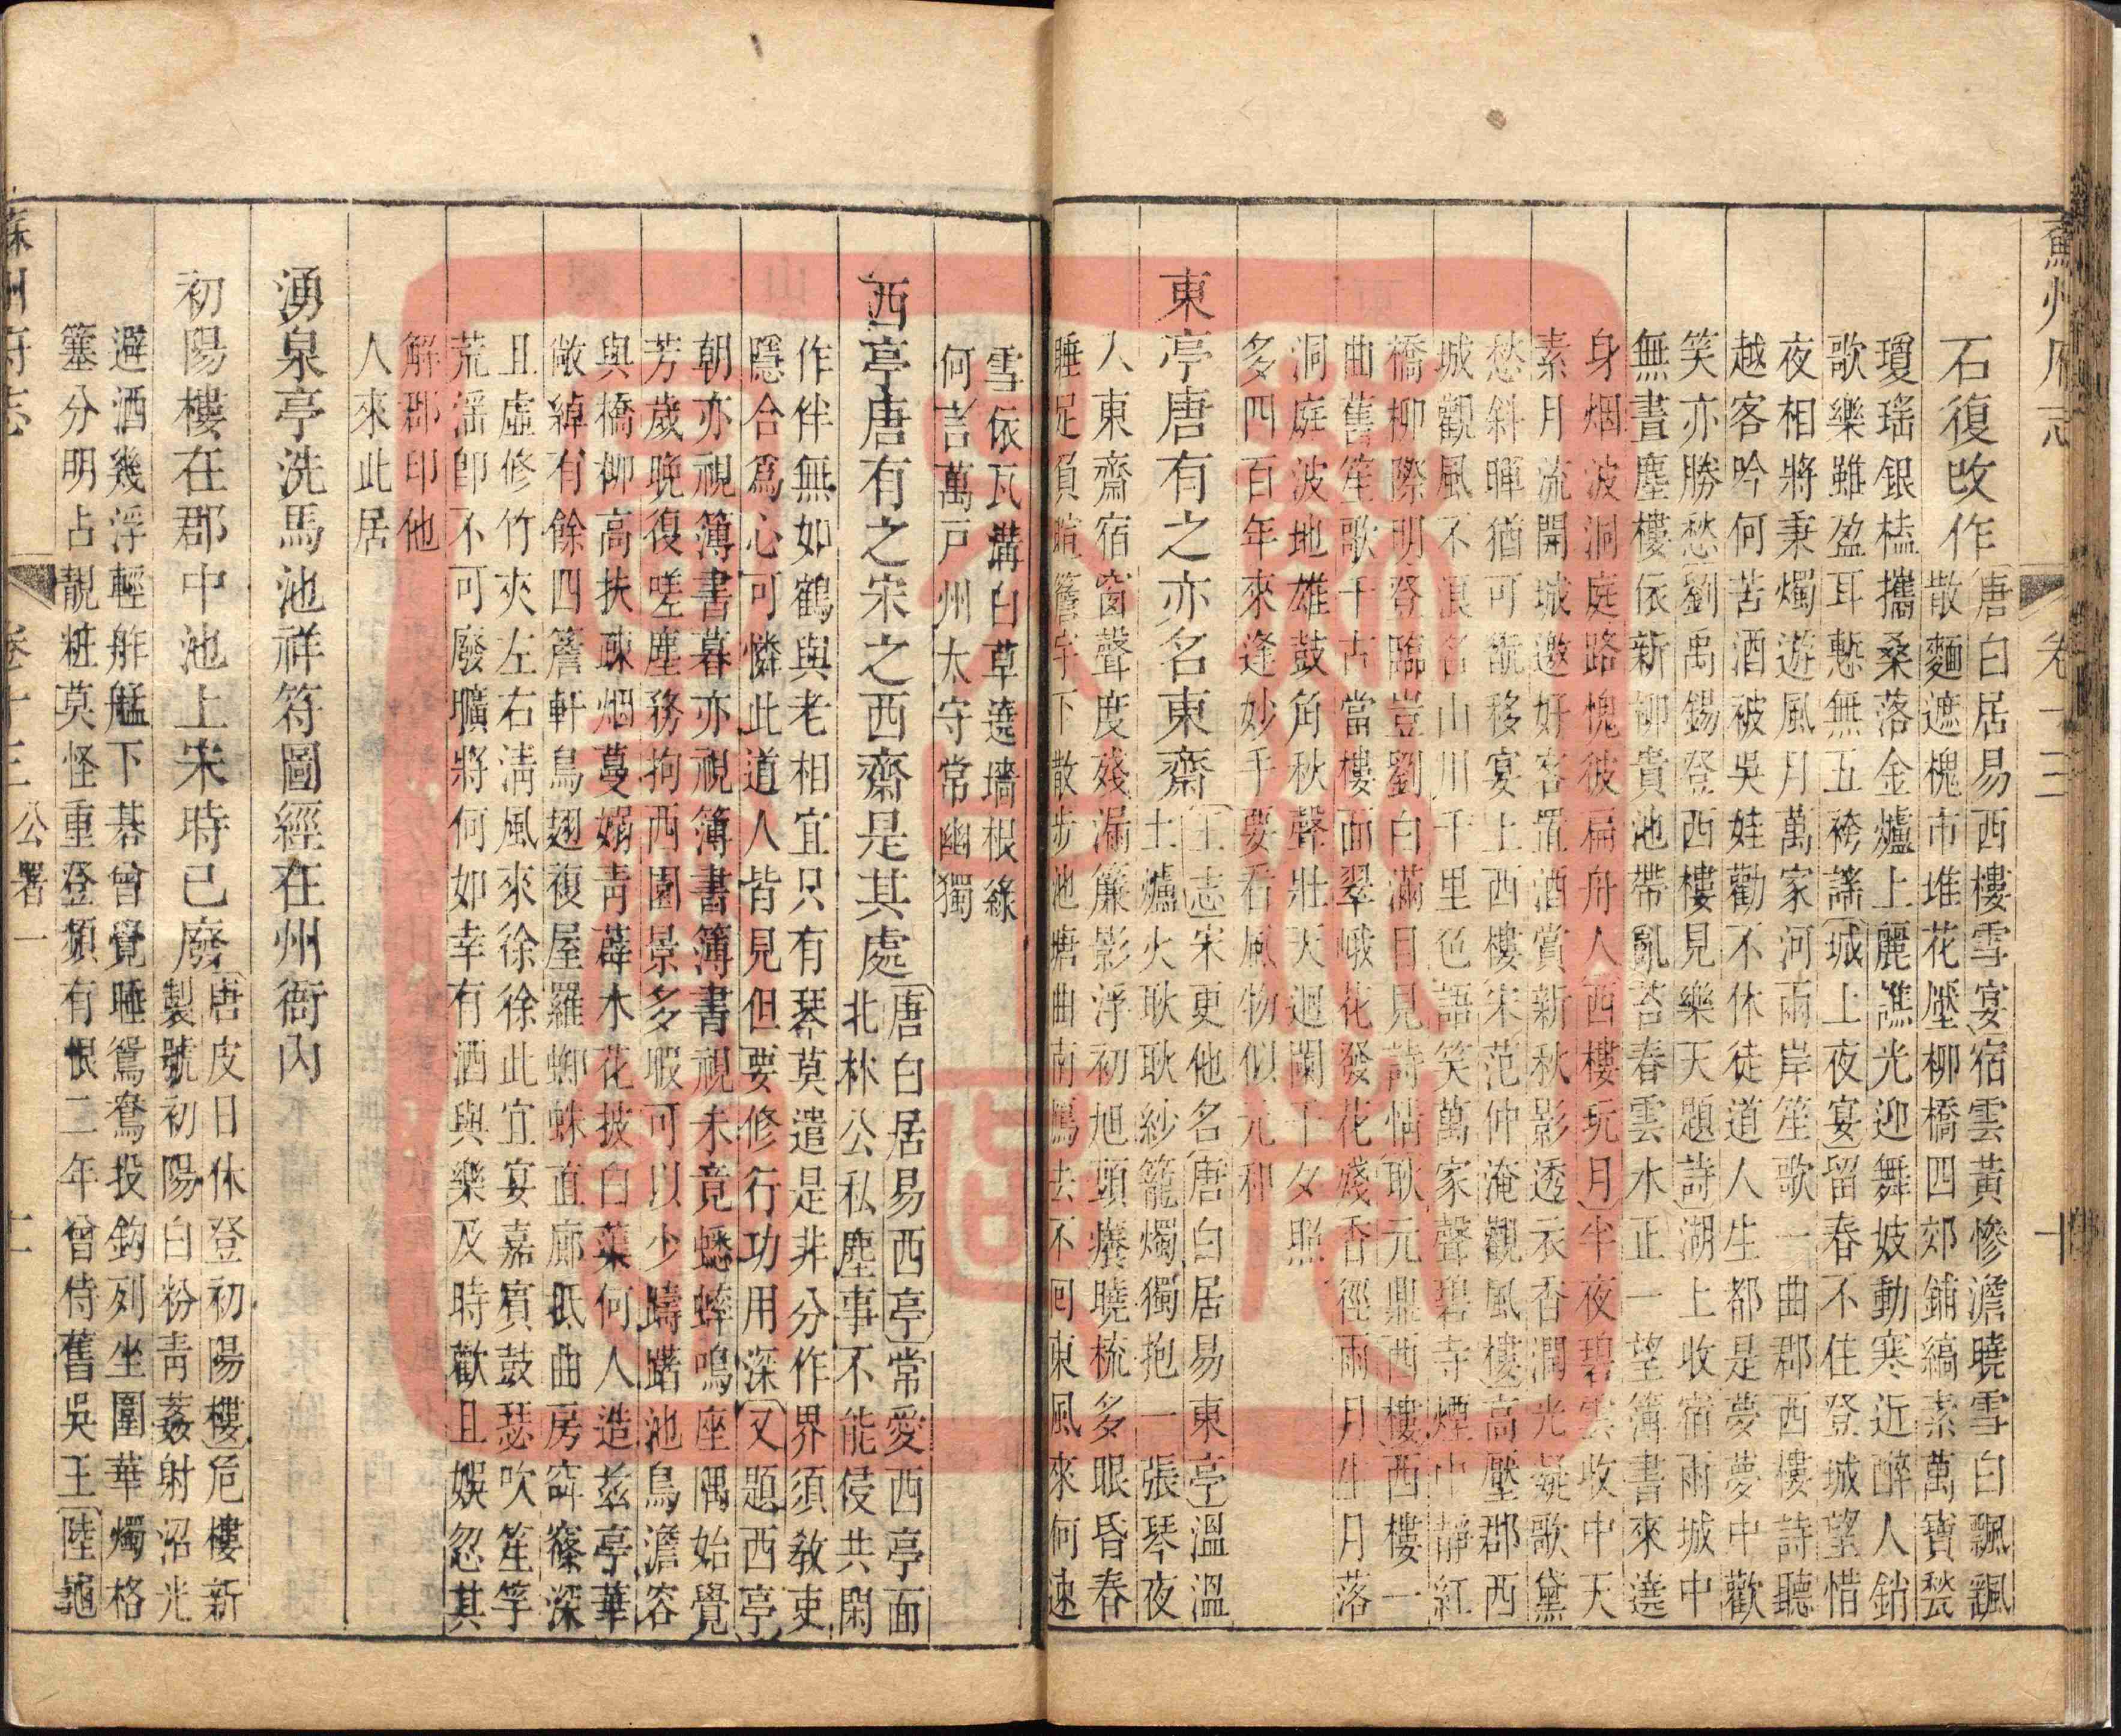 蘇州府志 卷十三 十
石復改作
唐白居易西樓雪宴宿雲黃慘澹曉雪白飄颻
散麵遮槐市堆花壓柳橋四郊鋪縞素萬寶甃
瓊瑤銀榼攜桑落金爐上麗譙光迎舞妓動寒近醉人銷
歌樂雖盈耳慙無五袴謠城上夜宴留春不住登城望惜
夜相將秉燭遊風月萬家河兩岸笙歌一曲郡西樓詩聽
越客吟何苦酒被吳娃勸不休徒道人生都是夢夢中歡
笑亦勝愁劉禹錫登西樓見樂天題詩湖上收宿雨城中
無晝塵樓依新柳貴池帶亂苔春雲水正一望簿書來遶
身烟波洞庭路愧彼扁舟人西樓玩月半夜碧雲收中天
素月流開城邀好客置酒賞新秋影透衣香潤光凝歌黛
愁斜暉猶可翫移宴上西樓宋范仲淹觀風樓高壓郡西
城觀風不浪名山川千里色語笑萬家聲碧寺煙中靜紅
橋柳際明登臨豈劉白滿目見詩情耿元鼎西樓西樓一
曲舊笙歌千古當樓面翠峨花發花殘香徑雨月生月落
洞庭波地雄鼓角秋聲壯天迥闌干夕照
多四百年來逢妙手要看風物似元和
東亭唐有之亦名東齋
王志宋更他名唐白居易東亭溫溫
土爐火耿耿紗籠燭獨抱一張琴夜
入東齋宿窗聲度殘漏簾影浮初旭頭癢曉梳多眼昏春
睡足負暄簷宇下散步池塘曲南鴈去不回東風來何速
雪依瓦溝白草遶墻根綠
何言萬戶州太守常幽獨
西亭唐有之宋之西齋是其處
唐白居易西亭常愛西亭面
北林公私塵事不能侵共閑
作伴無如鶴與老相宜只有琴莫遣是非分作界須教吏
隱合爲心可憐此道人皆見但要修行功用深又題西亭
朝亦視簿書暮亦視簿書簿書視未竟蟋蟀鳴座隅始覺
芳歲晚復嗟塵務拘西園景多暇可以少躊躇池鳥澹容
與橋柳高扶疎烟蔓嫋青薜水花披白蕖何人造茲亭華
敞綽有餘四簷軒鳥翅複屋羅蜘蛛直廊抵曲房窈窱深
且虛修竹夾左右淸風來徐徐此宜宴嘉賓鼓瑟吹笙竽
荒淫卽不可廢曠將何如幸有酒與樂及時歡且娛忽其
解郡印他
人來此居
湧泉亭洗馬池祥符圖經在州衙內
初陽樓在郡中池上宋時已廢
唐皮日休登初陽樓危樓新
製號初陽白粉靑菱射沼光
避酒幾浮輕舴艋下棊曾覺睡鴛鴦投鈎列坐圍華燭格
簺分明占靚粧莫怪重登頻有恨二年曾侍舊吳王陸龜
蘇州府志 卷十三 公署一 十一